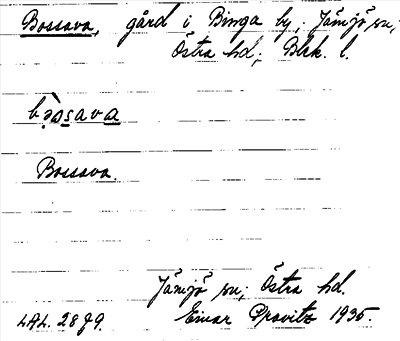 Bossava, gård i Binga by, Jämjö sn,
Östra hd, Blek. l.
Bossava.
Jämjö sn, Östra hd.
LAL. 2879. Einar 1935.